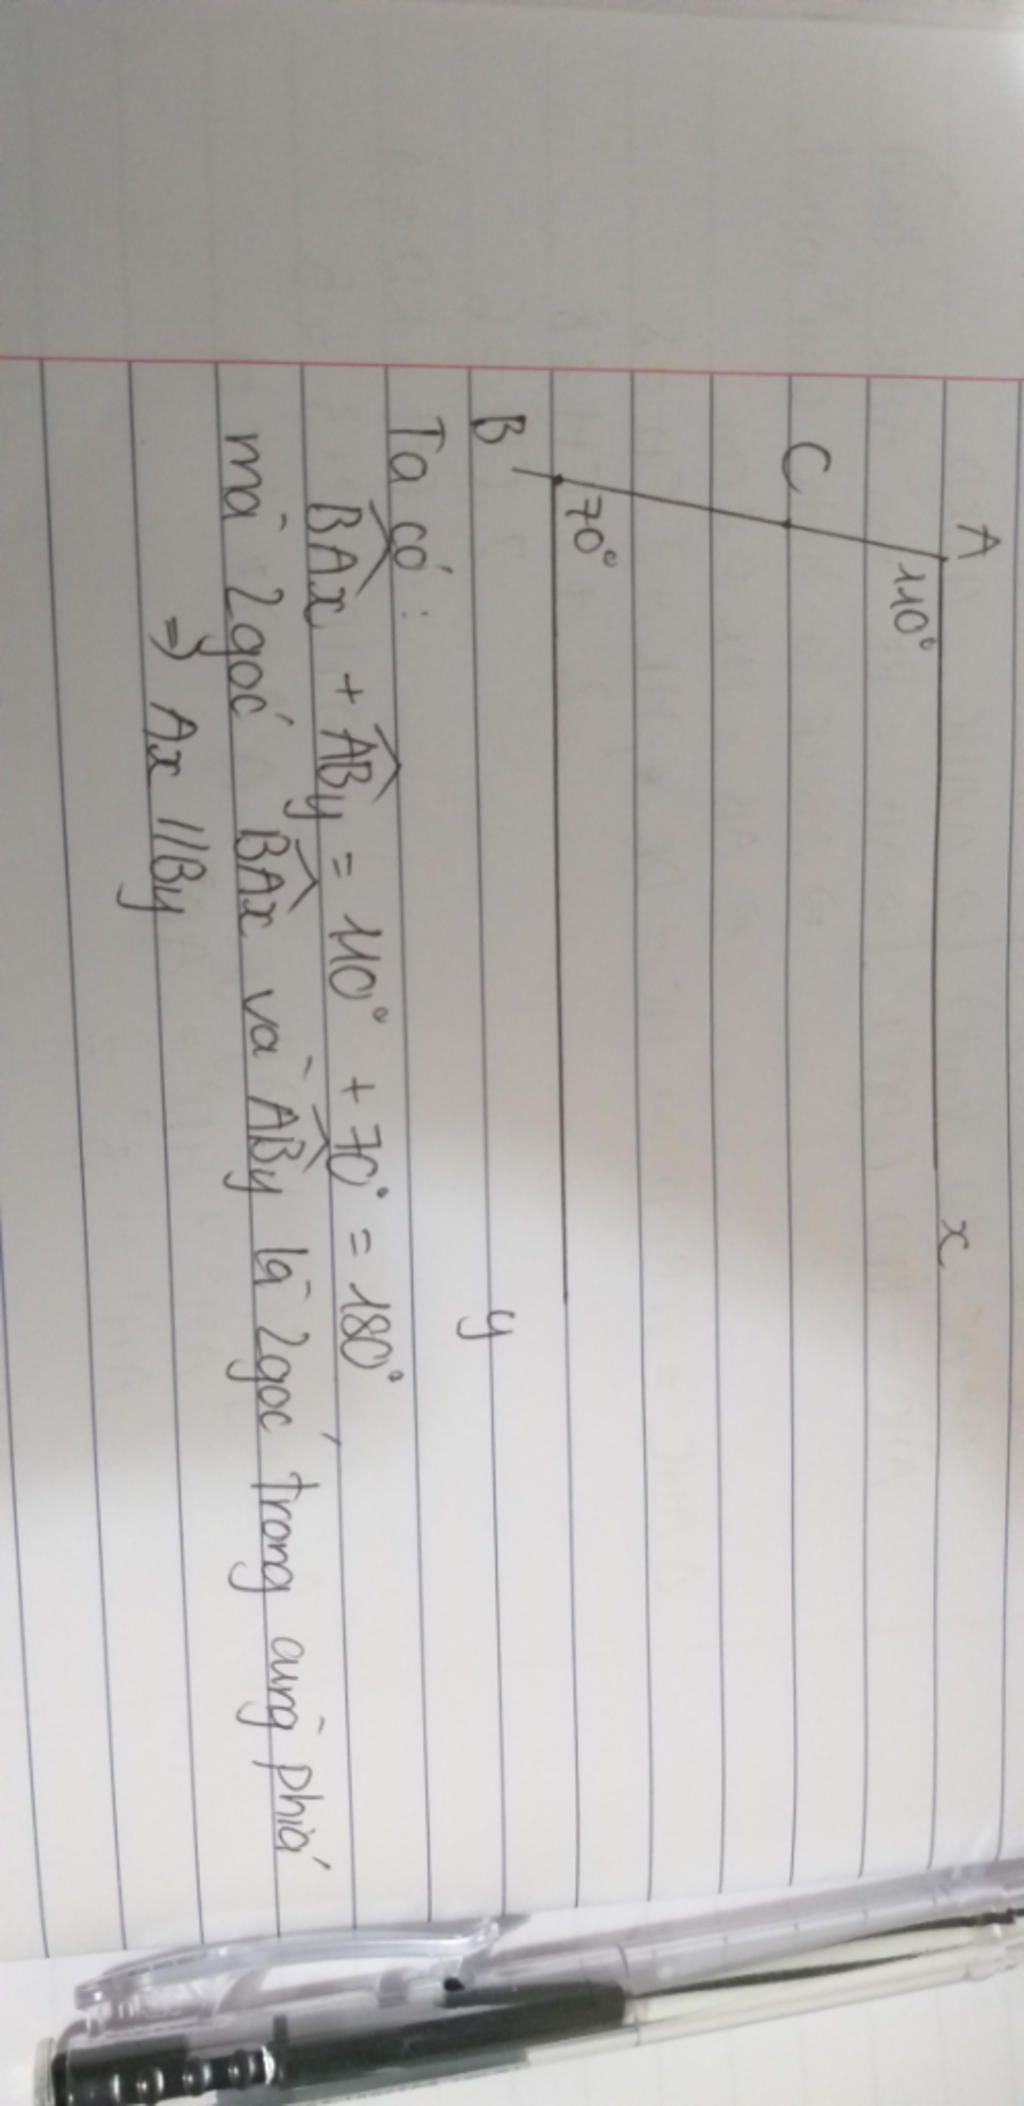 A
x
110°
C
70°
B
y
Ta có:
BAx + ABy = 110° + 70° = 180°
mà 2góc BAx và ABy là 2góc trong cùng phía
⇒ Ax // By